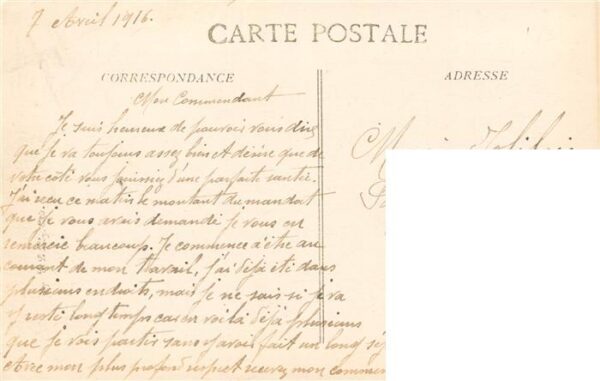 7 Avril 1916.
CARTE POSTALE
CORRESPONDANCE
ADRESSE
Mon Commandant
Je suis heureux de pouvoir vous dire
que je va toujours assez bien et désire que de
votre côté vous jouissiez d'une parfaite santé.
J'ai reçu ce matin le montant du mandat
que je vous avais demandé je vous en
remercie beaucoup. Je commence a être au
courant de mon travail, j'ai déjà été dans
plusieurs endroits, mais je ne sais si je va
y resté longtemps car en voilà déjà plusieurs
que je vois partir sans y avoir fait un long sé
Avec mon plus profond respect recevez mon comman